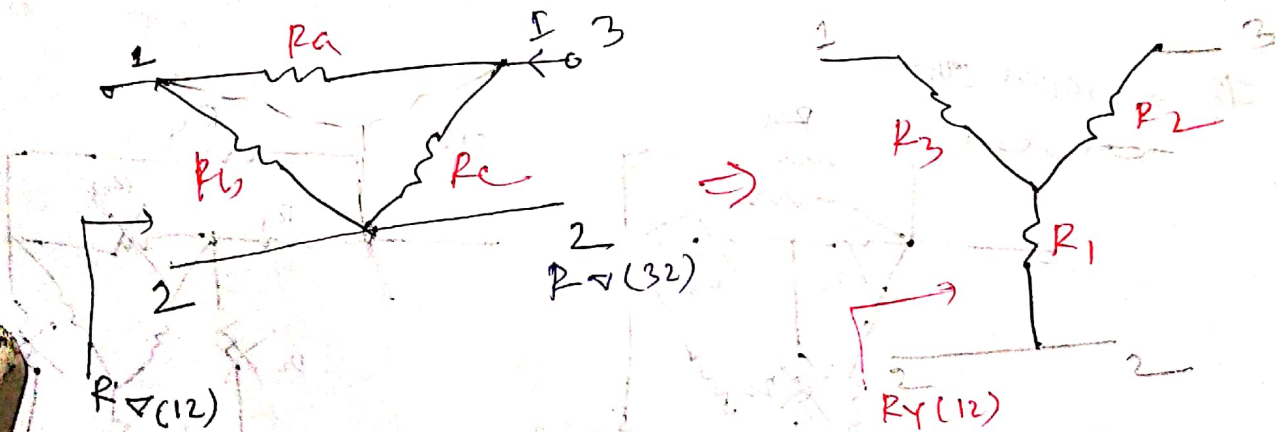 1
Ra
I
3
Rb
Rc
2
2
R∇(32)
R∇(12)
⇒
1
3
R3
R2
R1
2
2
RY(12)